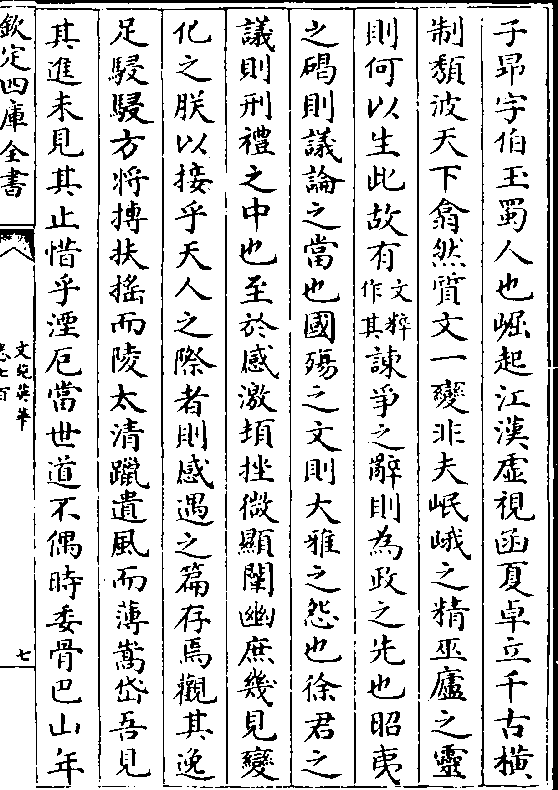 子昂字伯玉蜀人也崛起江漢虛視函夏卓立千古橫
制頽波天下翕然質文一變非夫岷峨之精巫廬之靈
則何以生此故有文粹作其諫爭之辭則為政之先也昭夷
之碣則議論之當也國殤之文則大雅之怨也徐君之
議則刑禮之中也至於感激頓挫微顯闡幽庶幾見變
化之朕以接乎天人之際者則感遇之篇存焉觀其逸
足駸駸方將摶扶搖而陵太清躐遺風而薄嵩岱吾見
其進未見其止惜乎湮厄當世道不偶時委骨巴山年
欽定四庫全書
文苑英華
卷七百
七